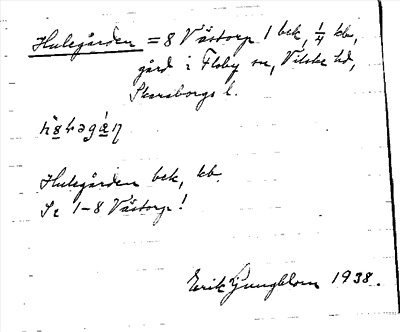 Hulegården = 8 Våstorp 1 bek, 1/4 kb,
gård i Floby sn, Vilske hd,
Skaraborgs l.
Hulegården bek, kb.
Se 1-8 Våstorp!
Erik Ljungblom 1938.